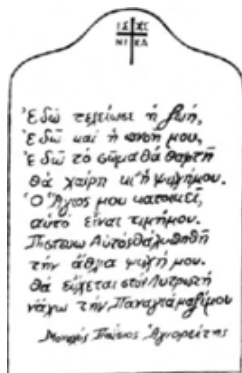 ΙΣ ΧΣ
ΝΙ ΚΑ
Ἐδῶ τελείωσε ἡ ζωή,
Ἐδῶ καί ἡ πνοή μου,
Ἐδῶ τό σῶμα θά θαφτῆ
θά χαίρη κι' ἡ ψυχή μου.
Ὁ Ἅγιος μου κατοικεῖ,
αὐτό εἶναι τιμή μου.
Πιστεύω Αὐτός θά λυπηθῆ
τήν ἄθλια ψυχή μου.
Θά εὔχεται στόν Λυτρωτή
νἄχω τήν Παναγιά μαζί μου
Μοναχός Παΐσιος Ἁγιορείτης